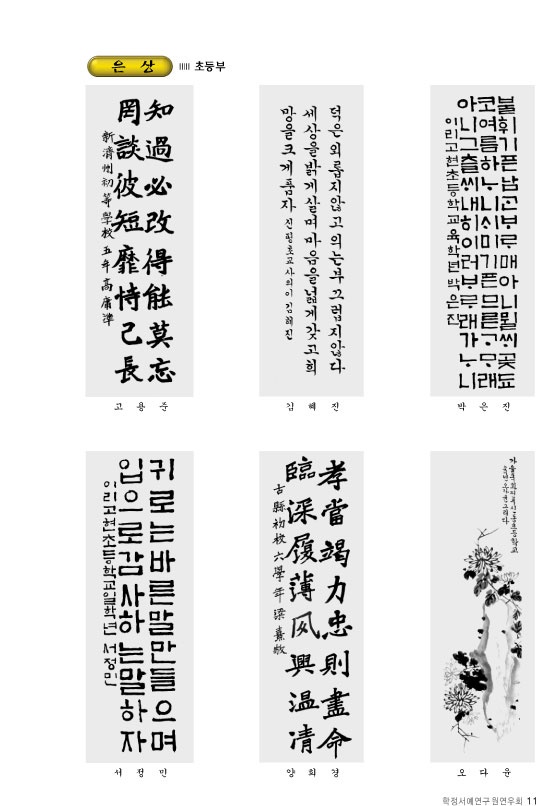 은 상 초등부
知過必改得能莫忘
罔談彼短靡恃己長
新濟州初等學校 五年 高庸準
고 용 준
덕은외롭지않고의는부그럽지않다
세상을밝게살며마음을넓게갖고희
망을크게품자 신평초교 김혜진
김 혜 진
불휘기픈남ᄀᆞᆫᄇᆞᄅᆞ매아니뮐ᄊᆡ곶됴
코여름하ᄂᆞ니ᄉᆡ미기픈므른ᄀᆞᄆᆞ래
아니그츨ᄊᆡ내히이러ᄇᆞᄅᆞ래가ᄂᆞ니
이리고현초등학교육학년박은진
박 은 진
귀로는바른말만들으며
입으로감사하는말하자
이리고현초등학교일학년 서정민
서 정 민
孝當竭力忠則盡命
臨深履薄夙興温凊
古縣初校六學年 梁熹敬
양 희 경
오 다 윤
학정서예연구원연우회 11